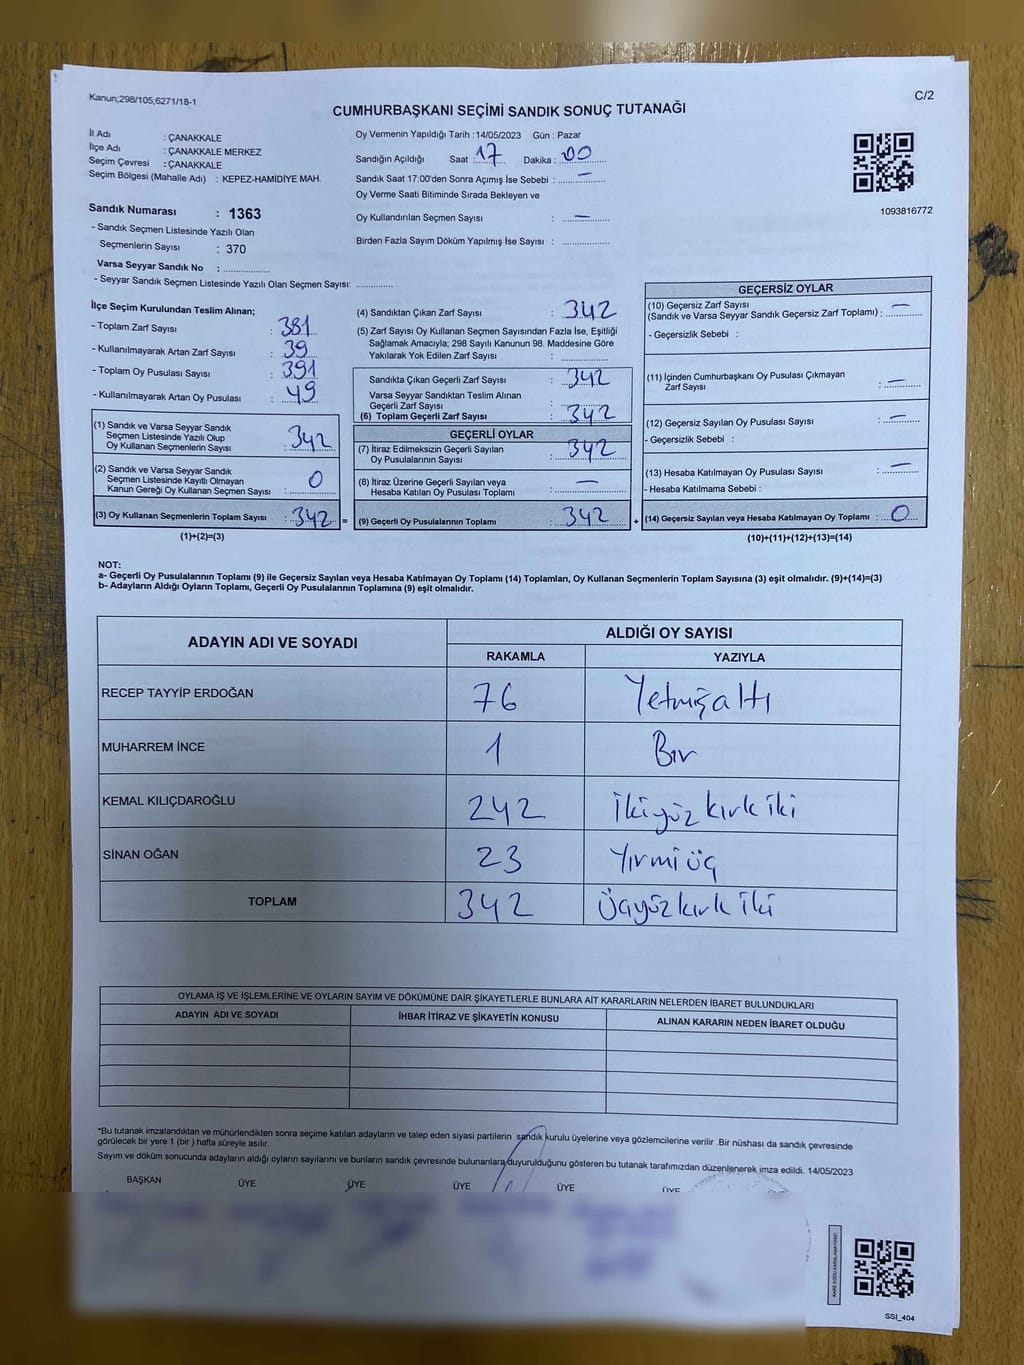 Kanun;298/105;6271/18-1
C/2
CUMHURBAŞKANI SEÇİMİ SANDIK SONUÇ TUTANAĞI
İl Adı : ÇANAKKALE
İlçe Adı : ÇANAKKALE MERKEZ
Seçim Çevresi : ÇANAKKALE
Seçim Bölgesi (Mahalle Adı) : KEPEZ-HAMİDİYE MAH.
Sandık Numarası : 1363
- Sandık Seçmen Listesinde Yazılı Olan
Seçmenlerin Sayısı : 370
Varsa Seyyar Sandık No : ................
- Seyyar Sandık Seçmen Listesinde Yazılı Olan Seçmen Sayısı: ............
Oy Vermenin Yapıldığı Tarih : 14/05/2023 Gün : Pazar
Sandığın Açıldığı Saat : 17 Dakika : 00
Sandık Saat 17:00'den Sonra Açımış İse Sebebi : —
Oy Verme Saati Bitiminde Sırada Bekleyen ve
Oy Kullandırılan Seçmen Sayısı : —
Birden Fazla Sayım Döküm Yapılmış İse Sayısı : ................
1093816772
İlçe Seçim Kurulundan Teslim Alınan;
- Toplam Zarf Sayısı : 381
- Kullanılmayarak Artan Zarf Sayısı : 39
- Toplam Oy Pusulası Sayısı : 391
- Kullanılmayarak Artan Oy Pusulası : 49
(1) Sandık ve Varsa Seyyar Sandık
Seçmen Listesinde Yazılı Olup
Oy Kullanan Seçmenlerin Sayısı : 342
(2) Sandık ve Varsa Seyyar Sandık
Seçmen Listesinde Kayıtlı Olmayan
Kanun Gereği Oy Kullanan Seçmen Sayısı : 0
(3) Oy Kullanan Seçmenlerin Toplam Sayısı : 342 =
(1)+(2)=(3)
(4) Sandıktan Çıkan Zarf Sayısı : 342
(5) Zarf Sayısı Oy Kullanan Seçmen Sayısından Fazla İse, Eşitliği
Sağlamak Amacıyla; 298 Sayılı Kanunun 98. Maddesine Göre
Yakılarak Yok Edilen Zarf Sayısı : ................
Sandıkta Çıkan Geçerli Zarf Sayısı : 342
Varsa Seyyar Sandıktan Teslim Alınan
Geçerli Zarf Sayısı : ................
(6) Toplam Geçerli Zarf Sayısı : 342
GEÇERLİ OYLAR
(7) İtiraz Edilmeksizin Geçerli Sayılan
Oy Pusulalarının Sayısı : 342
(8) İtiraz Üzerine Geçerli Sayılan veya
Hesaba Katılan Oy Pusulası Toplamı : —
(9) Geçerli Oy Pusulalarının Toplamı : 342 +
GEÇERSİZ OYLAR
(10) Geçersiz Zarf Sayısı
(Sandık ve Varsa Seyyar Sandık Geçersiz Zarf Toplamı) : —
- Geçersizlik Sebebi :
(11) İçinden Cumhurbaşkanı Oy Pusulası Çıkmayan
Zarf Sayısı : —
(12) Geçersiz Sayılan Oy Pusulası Sayısı : —
- Geçersizlik Sebebi :
(13) Hesaba Katılmayan Oy Pusulası Sayısı : —
- Hesaba Katılmama Sebebi :
(14) Geçersiz Sayılan veya Hesaba Katılmayan Oy Toplamı : 0
(10)+(11)+(12)+(13)=(14)
NOT:
a- Geçerli Oy Pusulalarının Toplamı (9) ile Geçersiz Sayılan veya Hesaba Katılmayan Oy Toplamı (14) Toplamları, Oy Kullanan Seçmenlerin Toplam Sayısına (3) eşit olmalıdır. (9)+(14)=(3)
b- Adayların Aldığı Oyların Toplamı, Geçerli Oy Pusulalarının Toplamına (9) eşit olmalıdır.
ADAYIN ADI VE SOYADI ALDIĞI OY SAYISI
RAKAMLA YAZIYLA
RECEP TAYYİP ERDOĞAN 76 Yetmişaltı
MUHARREM İNCE 1 Bir
KEMAL KILIÇDAROĞLU 242 İkiyüz kırk iki
SİNAN OĞAN 23 Yirmi üç
TOPLAM 342 Üçyüz kırk iki
OYLAMA İŞ VE İŞLEMLERİNE VE OYLARIN SAYIM VE DÖKÜMÜNE DAİR ŞİKAYETLERLE BUNLARA AİT KARARLARIN NELERDEN İBARET BULUNDUKLARI
ADAYIN ADI VE SOYADI İHBAR İTİRAZ VE ŞİKAYETİN KONUSU ALINAN KARARIN NEDEN İBARET OLDUĞU
*Bu tutanak imzalandıktan ve mühürlendikten sonra seçime katılan adayların ve talep eden siyasi partilerin sandık kurulu üyelerine veya gözlemcilerine verilir .Bir nüshası da sandık çevresinde
görülecek bir yere 1 (bir ) hafta süreyle asılır.
Sayım ve döküm sonucunda adayların aldığı oyların sayılarını ve bunların sandık çevresinde bulunanlara duyurulduğunu gösteren bu tutanak tarafımızdan düzenlenerek imza edildi. 14/05/2023
BAŞKAN ÜYE ÜYE ÜYE ÜYE ÜYE
SSI_404